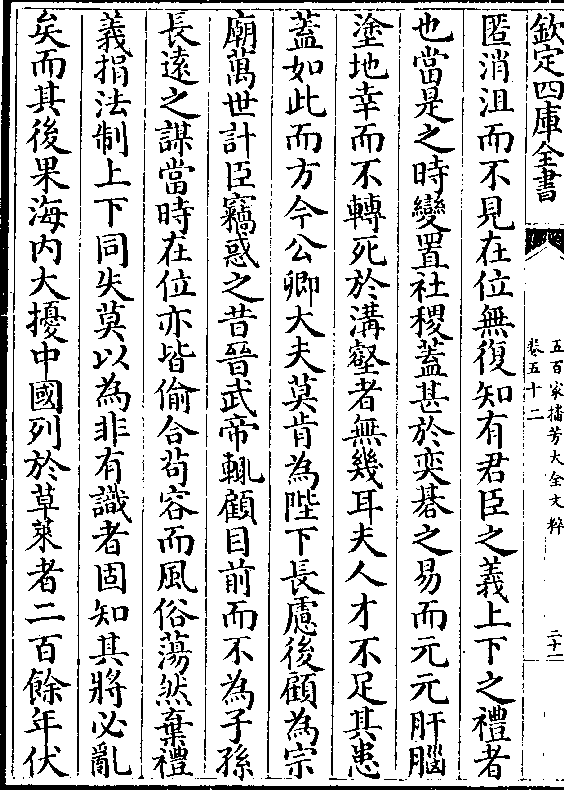 欽定四庫全書
五百家播芳大全文粹
卷五十二
二十一
匿消沮而不見在位無復知有君臣之義上下之禮者
也當是之時變置社稷蓋甚於奕碁之易而元元肝腦
塗地幸而不轉死於溝壑者無幾耳夫人才不足其患
蓋如此而方今公卿大夫莫肯為陛下長慮後顧為宗
廟萬世計臣竊惑之昔晉武帝輒顧目前而不為子孫
長遠之謀當時在位亦皆偷合苟容而風俗蕩然棄禮
義捐法制上下同失莫以為非有識者固知其將必亂
矣而其後果海内大擾中國列於草萊者二百餘年伏